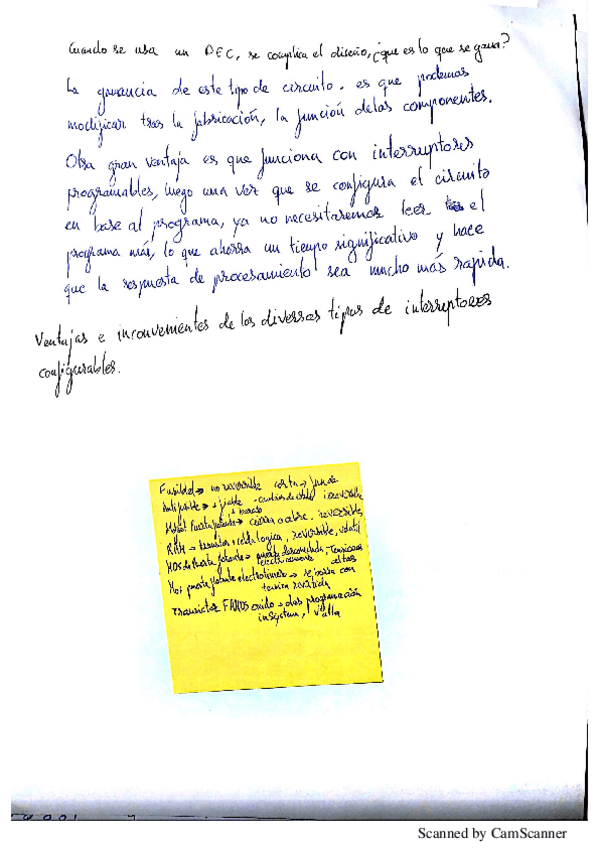 Cuando se usa un DEC, se complica el diseño, ¿que es lo que se gana?
La ganancia de este tipo de circuito. es que podemos
modificar tras la fabricación, la función de los componentes.
Otra gran ventaja es que funciona con interruptores
programables, luego una vez que se configura el circuito
en base al programa, ya no necesitaremos leer el
programa más, lo que ahorra un tiempo significativo y hace
que la respuesta de procesamiento sea mucho más rapida.
Ventajas e inconvenientes de los diversos tipos de interruptores
configurables.
Fusible → no reversible corta → funde
Antifusible → + fiable - cambios de estado irreversible
+ barato
→ cierra o abre, reversible,
RAM → + celda logica, reversible, volatil
MOS de Puerta flotante → puerta desconectada, Tensiones
electricamente altas
Mos puerta flotante → se borra con
tension invertida
transistor FAMOS → dos programación
inSystem, Valla
Scanned by CamScanner